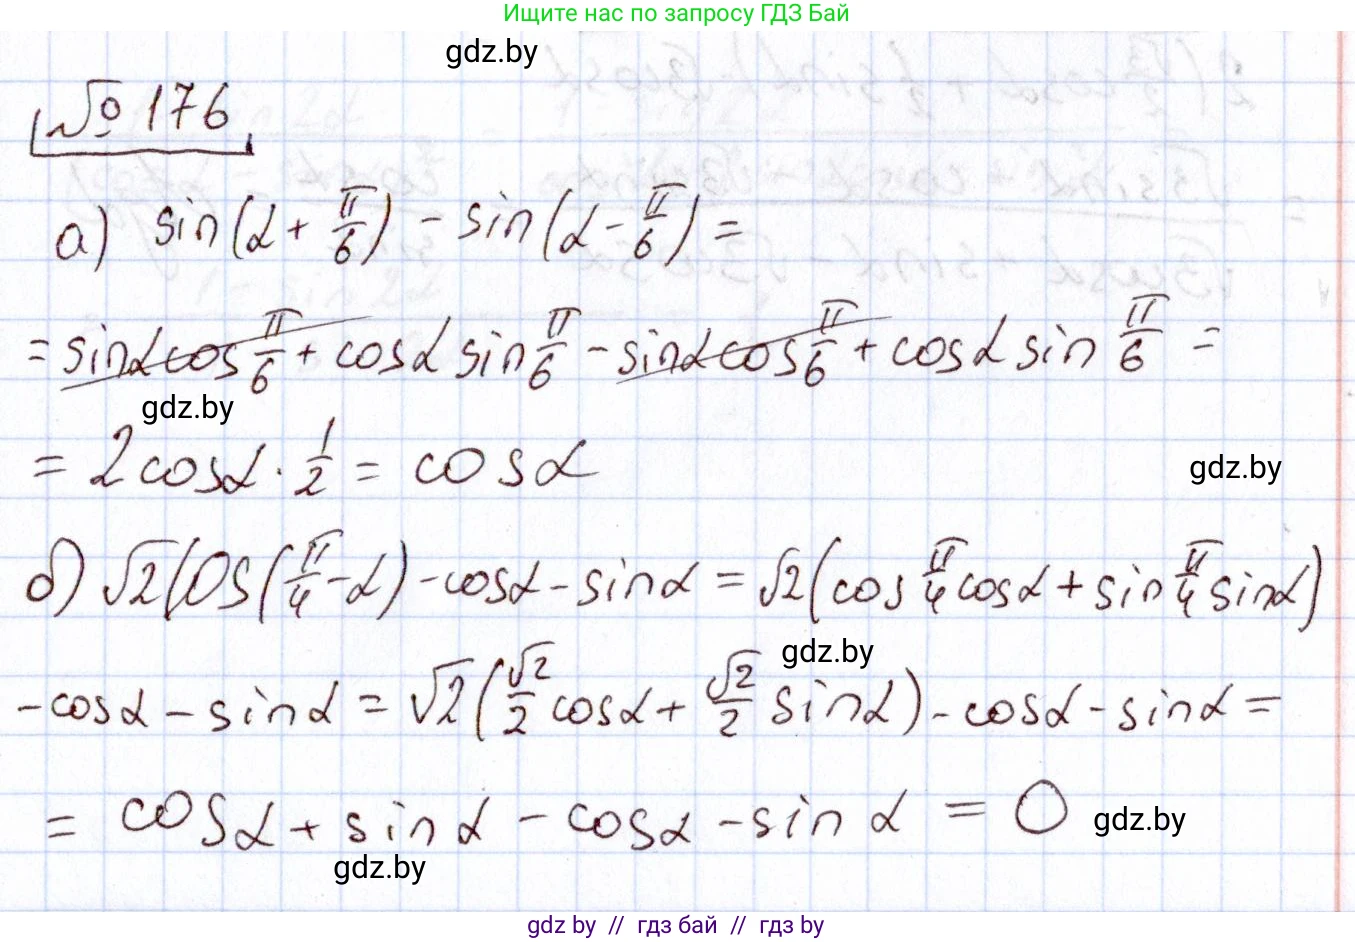 Ищите нас по запросу ГДЗ Бай
gdz.by
№ 176
а) sin(α + π/6) - sin(α - π/6) =
= sinα cos π/6 + cosα sin π/6 - sinα cos π/6 + cosα sin π/6 =
gdz.by
= 2cosα · 1/2 = cosα
gdz.by
б) √2 cos(π/4 - α) - cosα - sinα = √2(cos π/4 cosα + sin π/4 sinα)
gdz.by
- cosα - sinα = √2(√2/2 cosα + √2/2 sinα) - cosα - sinα =
= cosα + sinα - cosα - sinα = 0
gdz.by
gdz.by
gdz by // гдз бай // гдз by